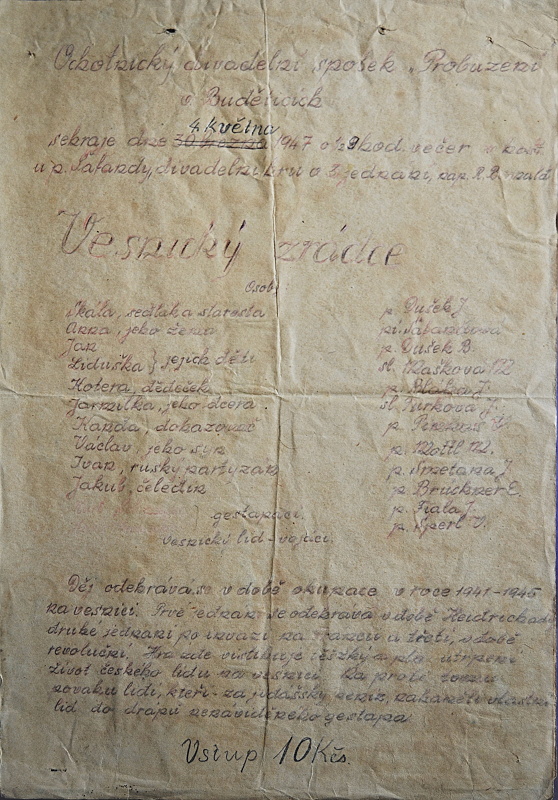 Ochotnický divadelní spolek „Probuzení
v Buděticích
4. Května
sehraje dne 1947 o ½9 hod. večer v host.
u p. Šafandy, divadelní hru o 3 jednání, nap. R.
Vesnický zrádce
Osoby
Skála, sedlák a starosta p. Dušek J.
Anna, jeho žena pí. Šafandová
Jan p. Dušek B.
Liduška } jejich děti sl. Mašková M.
Kotera, dědeček p.
Jarmilka, jeho dcera. sl. Turková J.
Kanda, p.
Václav, jeho syn p. Mottl M.
Ivan, ruský partyzán p. Smetana J.
Jakub, čeledín p. Brückner E.
} gestapáci. p. Fiala J.
p. Šperl V.
vesnický lid - vojáci.
Děj odehrává se v době okupace v roce 1941-1945
na vesnici. Prvé jednání se odehrává v době
druhé jednání po invazi na Francii a třetí, v době
revoluční. Hra zde vistihuje těžký a utrpení
život českého lidu na vesnici. Na proti tomu
povahu lidí, kteří - za jidášský peníz, zahaněli vlastní
lid do drápů nenáviděného gestapa
Vstup 10 Kčs.